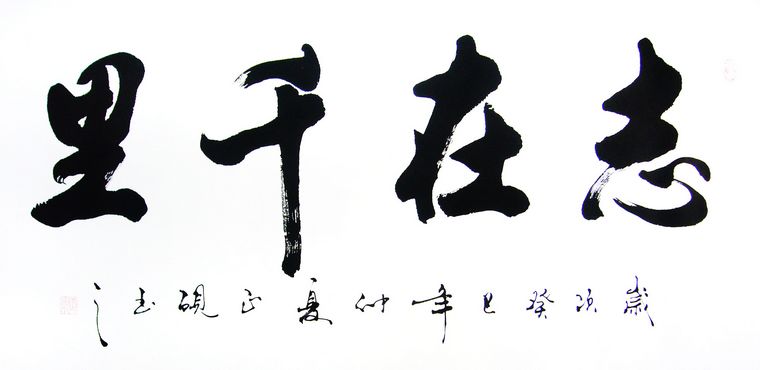 志在千里
歲次癸巳年仲夏正硯之